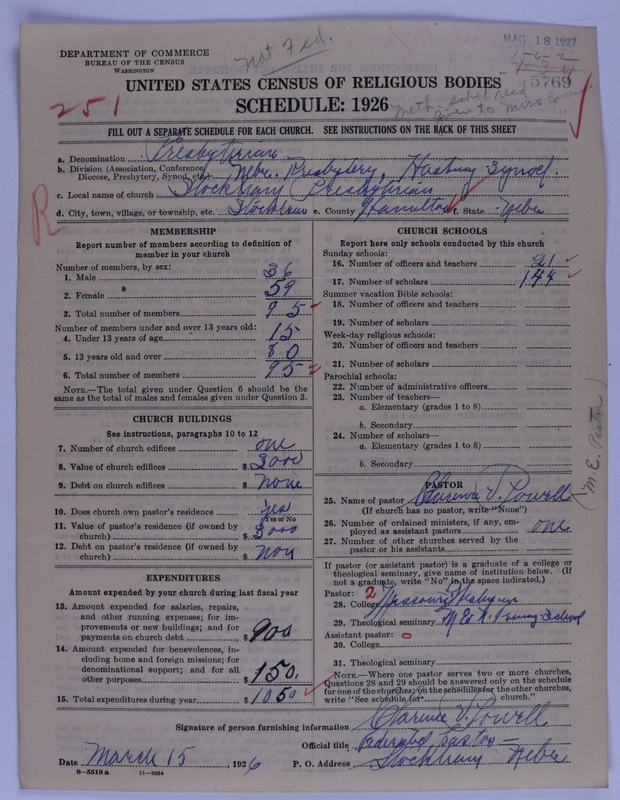 DEPARTMENT OF COMMERCE
BUREAU OF THE CENSUS
WASHINGTON
Not Fed.
MAR 18 1927
5769
UNITED STATES CENSUS OF RELIGIOUS BODIES
SCHEDULE: 1926
251
Meth. Sched read
given to Miss
FILL OUT A SEPARATE SCHEDULE FOR EACH CHURCH. SEE INSTRUCTIONS ON THE BACK OF THIS SHEET
R
a. Denomination Presbyterian
b. Division (Association, Conference, Diocese, Presbytery, Synod, etc.) Nebr. Presbytery, Hastings Synod.
c. Local name of church Stockham Presbyterian
d. City, town, village, or township, etc. Stockham e. County Hamilton f. State Nebr
MEMBERSHIP
Report number of members according to definition of
member in your church
Number of members, by sex:
1. Male 36
2. Female 59
3. Total number of members 95
Number of members under and over 13 years old:
4. Under 13 years of age 15
5. 13 years old and over 80
6. Total number of members 95
NOTE.—The total given under Question 6 should be the
same as the total of males and females given under Question 3.
CHURCH BUILDINGS
See instructions, paragraphs 10 to 12
7. Number of church edifices one
8. Value of church edifices $ 3000
9. Debt on church edifices $ none
10. Does church own pastor's residence yes
Yes or No
11. Value of pastor's residence (if owned by
church) $ 3000
12. Debt on pastor's residence (if owned by
church) $ non
EXPENDITURES
Amount expended by your church during last fiscal year
13. Amount expended for salaries, repairs,
and other running expenses; for im-
provements or new buildings; and for
payments on church debt $ 900
14. Amount expended for benevolences, in-
cluding home and foreign missions; for
denominational support; and for all
other purposes $ 150.
15. Total expenditures during year $ 1050
CHURCH SCHOOLS
Report here only schools conducted by this church
Sunday schools:
16. Number of officers and teachers 21
17. Number of scholars 144
Summer vacation Bible schools:
18. Number of officers and teachers
19. Number of scholars
Week-day religious schools:
20. Number of officers and teachers
21. Number of scholars
Parochial schools:
22. Number of administrative officers
23. Number of teachers—
a. Elementary (grades 1 to 8)
b. Secondary
24. Number of scholars—
a. Elementary (grades 1 to 8)
b. Secondary
(M.E. Pastor)
PASTOR
25. Name of pastor Clarence V. Powell
(If church has no pastor, write "None")
26. Number of ordained ministers, if any, em-
ployed as assistant pastors one
27. Number of other churches served by the
pastor or his assistants
If pastor (or assistant pastor) is a graduate of a college or
theological seminary, give name of institution below. (If
not a graduate, write "No" in the space indicated.)
Pastor: 2
28. College Missouri Wesleyan
29. Theological seminary
Assistant pastor: 0
30. College
31. Theological seminary
NOTE.—Where one pastor serves two or more churches,
Questions 28 and 29 should be answered only on the schedule
for one of the churches; on the schedules for the other churches,
write "See schedule for church."
Signature of person furnishing information Clarence V. Powell
Official title Federated Pastor
Date March 15, 1926 P. O. Address Stockham Nebr
8-5518 a 11-9054